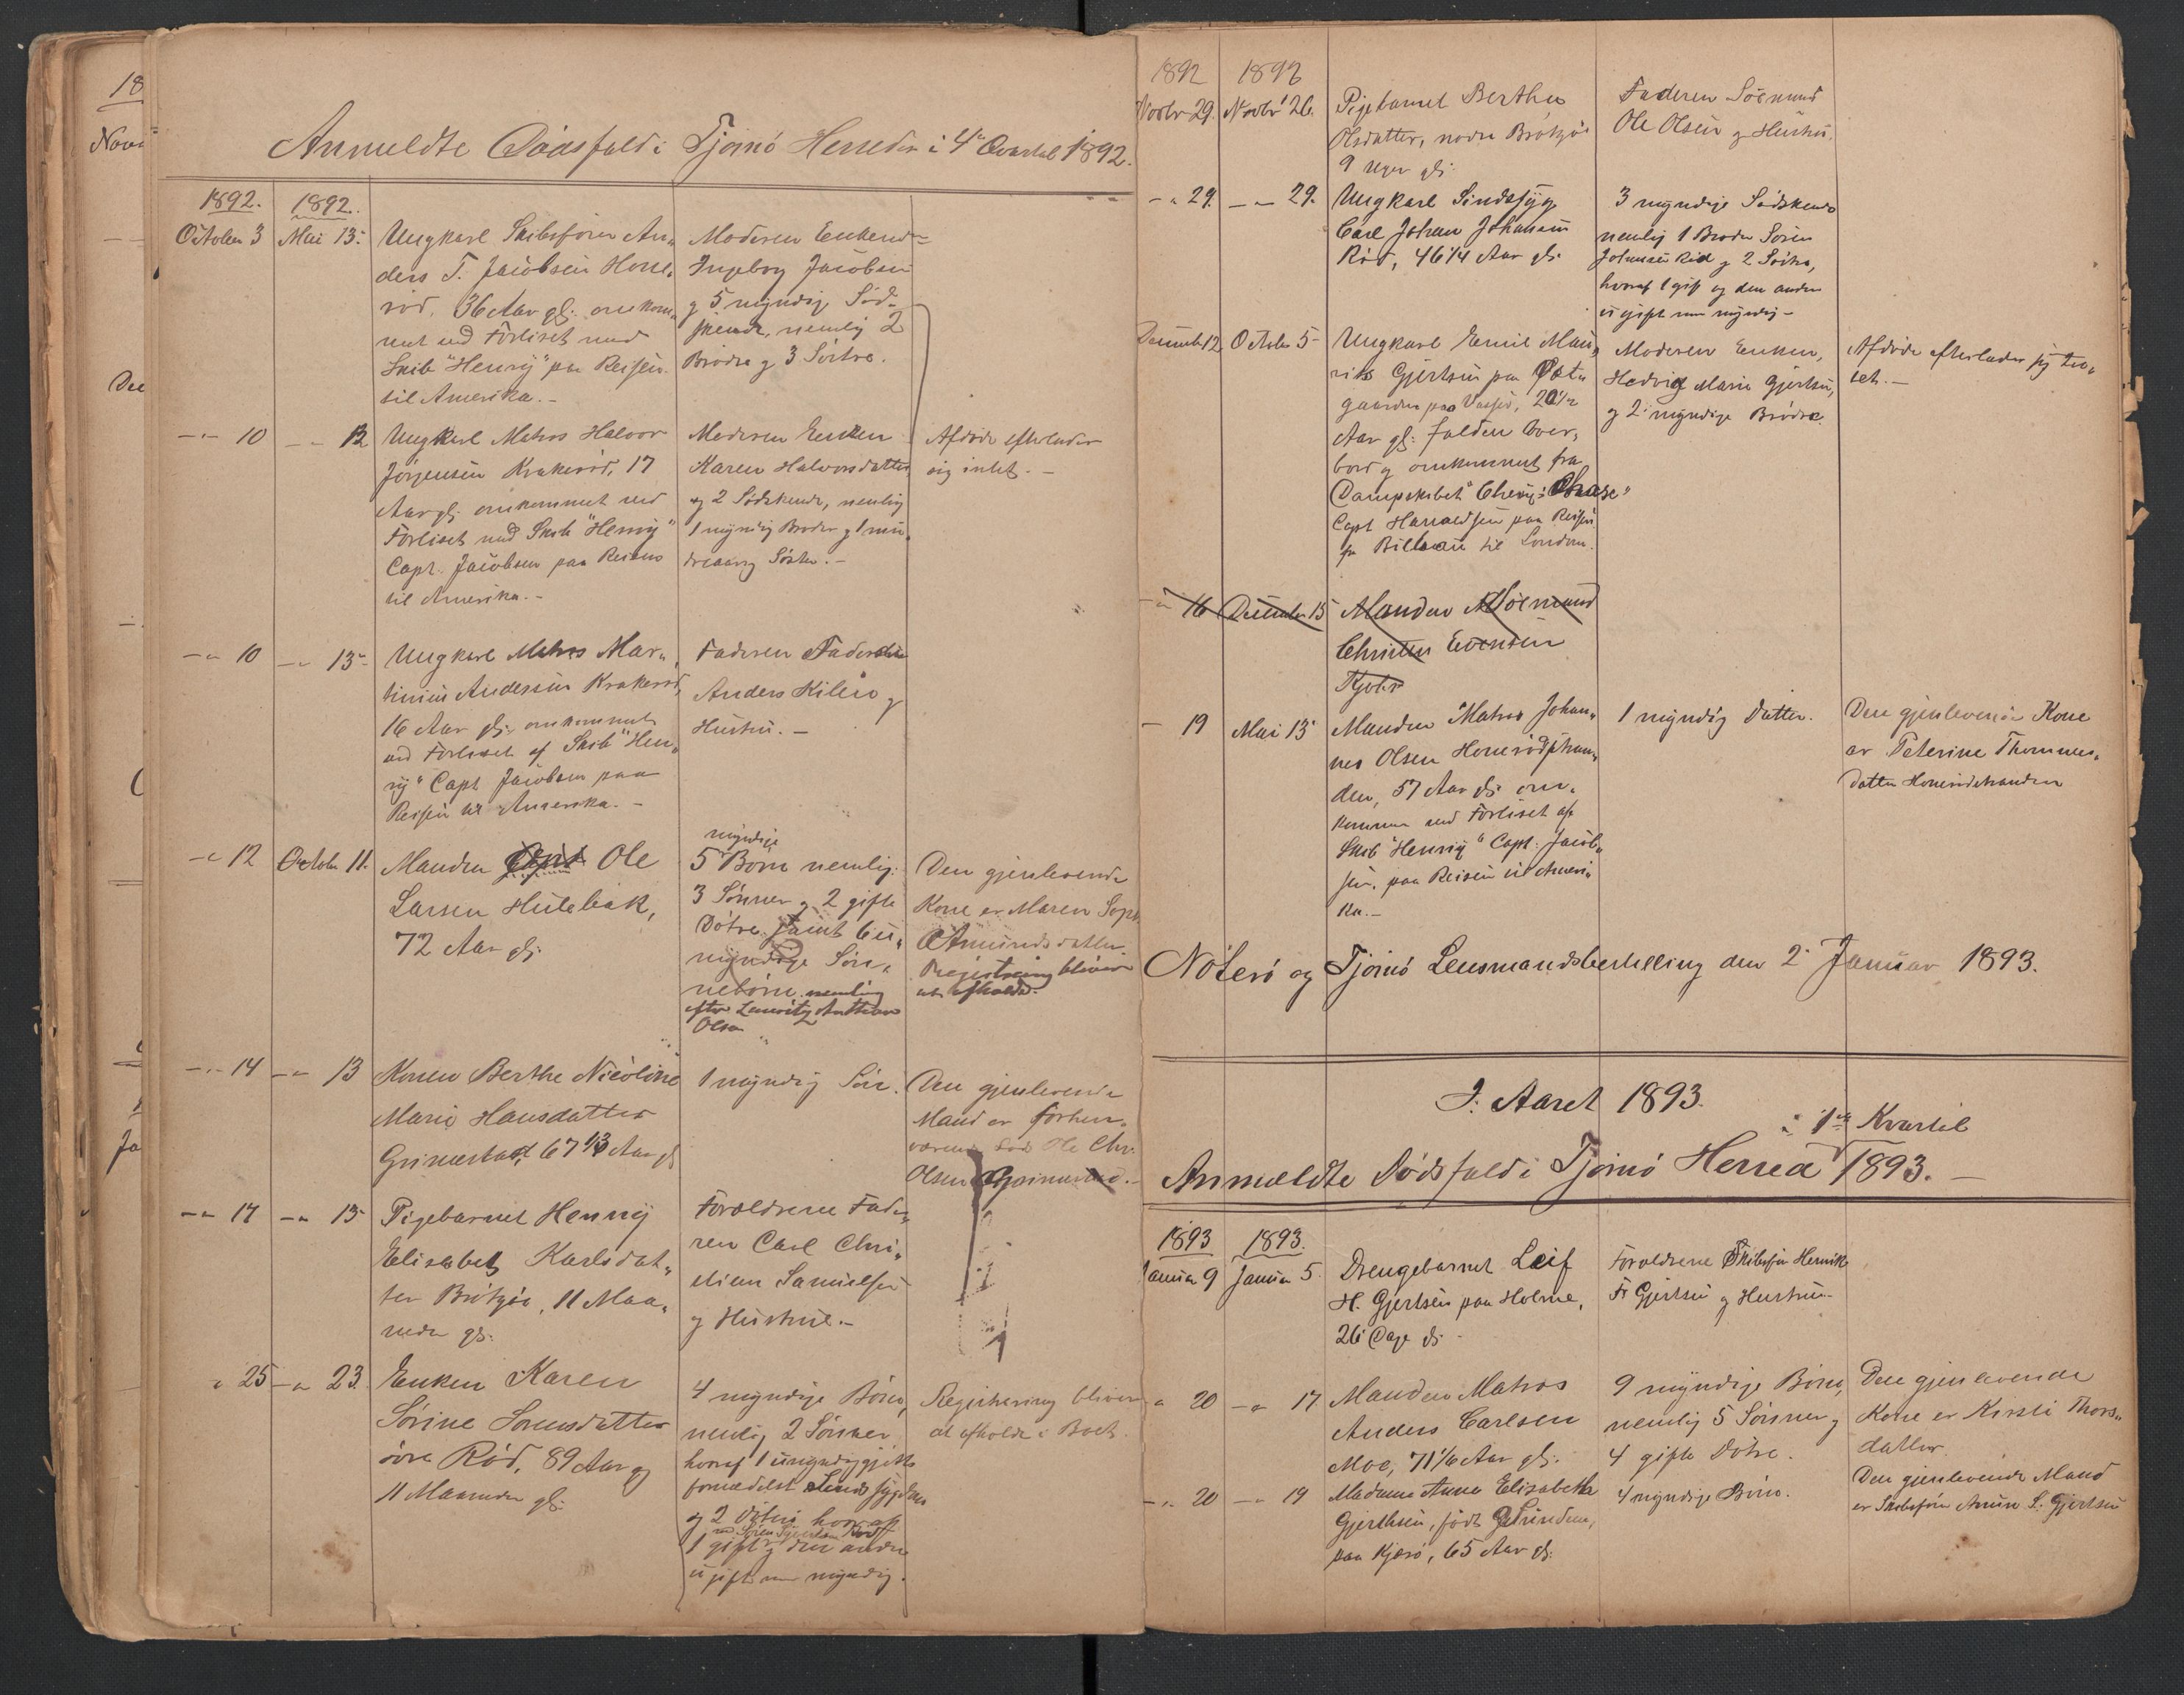 Anmeldte Dødsfald i Tjømø Herreder i 4de Qvartal 1892.
1892. 1892.
October 3 Mai 13.
Ungkarl Skibsfører An„
ders T. Jacobsen Honne„
rød, 36 Aar gl: omkom„
met ved Forliset med
Skib "Henrij" paa Reisen
til Amerika.-
Moderen Enken
Ingeborg Jacobsen
og 5 myndige Sød„
skende, nemlig 2
Brødre og 3 Søstre.
-"- 10 -"- 13
Ungkarl Matros Halvor
Jörgensen Krakerød, 17
Aar gl: omkommet ved
Forliset med Skib "Henrij"
Capt. Jacobsen paa Reisen
til Amerika.-
Moderen Enken
Karen Halvorsdatter
og 2 Sødskende, nemlig
1 myndig Broder og 1 min„
dreaarig Søster.-
Afdøde efterlader
sig intet.-
-"- 10 -"- 13
Ungkarl Matros Mar„
tinius Andersen Krakerød,
16 Aar gl: omkommet
ved Forliset af Skib "Hen„
rij" Capt Jacobsen paa
Reisen til Amerika.-
Faderen
Anders Kilen og
Hustru.-
-"- 12 October 11.
Manden Ole
Larsen Hulebak,
72 Aar gl:
myndige
5 Børn nemlig:
3 Sønner og 2 gifte
Døtre samt 6 u„
myndige Søn„
nebørn nemlig
efter Lauritz Anthon
Olsen
Den gjenlevende
Kone er Maren Soph.
Amundsdatter
Registrering bliver
at afholde.
-"- 14 -"- 13
Konen Berthe Nicoline
Marie Hansdatter
Grimestad, 67 1/3 Aar gl
1 myndig Søn.
Den gjenlevende
Mand er forhen„
værende Ole Chr.
Olsen Grimestad.-
-"- 17 -"- 15
Pigebarnet Henny
Elisabet Karlsdat„
ter Brötsøe, 11 Maa„
neder gl:
Forældrene Fade„
ren Carl Chri„
stian Samuelsen
og Hustrue.-
" 25 -"- 23.
Enken Karen
Sørine Sorensdatter
søre Rød, 89 Aar og
11 Maaneder gl:
4 myndige Börn,
nemlig 2 Sönner
hvoraf 1 umyndiggjort
formedelst Sindssygdom
og 2 Døtre hvoraf
1 gift og den anden
ugift men myndig.
Registrering bliver
at afholde i Boet.
1892 1892
Novbr 29. Novbr 26.
Pigebarnet Berthe
Olsdatter, nordre Brötsøe
9 Uger gl:
Faderen Sømand
Ole Olsen og Hustru.
-" 29. -"- 29.
Ungkarl Sindssyg
Carl Johan Johansen
Rød, 46 1/4 Aar gl:
3 myndige Sødskende
nemlig 1 Broder Sören
Johansen Rød og 2 Søstre,
hvoraf 1 gift og den anden
ugift men myndig-
December 12 October 5
Ungkarl Emil Mau„
rits Gjertsen paa Øst„
gaarden paa Vasser, 20 1/2
Aar gl: falden over„
bord og omkommet fra
Dampskibet "Chevy Chase"
Capt Haraldsen paa Reisen
fra Bilbau til London.
Moderen Enken,
Hedvig Marie Gjertsen,
og 2 myndige Brødre.
Afdøde efterlader sig
-"- 16 December 15
Manden Sømand
Christen Evensen
- 19 Mai 13
Manden Matros Johan„
nes Olsen Honerødstran„
den, 57 Aar gl: om„
kommen ved Forliset af
Skib "Henrij" Capt. Jacob„
sen, paa Reisen til Ameri„
ka.-
1 myndig Datter.
Den gjenlevende Kone
er Peterine Thommes„
datter Honerødstranden
Nøterø og Tjømø Lensmandsbestilling den 2 Januar 1893.
I Aaret 1893.
i 1ste Kvartal
Anmeldte Dødsfald i Tjømø Herred 1893.-
1893 1893.
Januar 9 Januar 5.
Drengebarnet Leif
H. Gjertsen paa Holme,
26 Dage gl:-
Forældrene Skibsfør Henrik
Fr Gjertsen og Hustru-
" 20 -"- 17
Manden Matros
Anders Carlsen
Moe, 71 1/6 Aar gl:
9 myndige Børn,
nemlig 5 Sönner og
4 gifte Døtre.
Den gjenlevende
Kone er Kirsti Thors„
datter.
-"- 20 -"- 19
Madame Anna Elisabeth
Gjerthsen, født
paa Kjærø, 65 Aar gl:
4 myndige Börn.
Den gjenlevende Mand
er Skibsfører S. Gjertsen